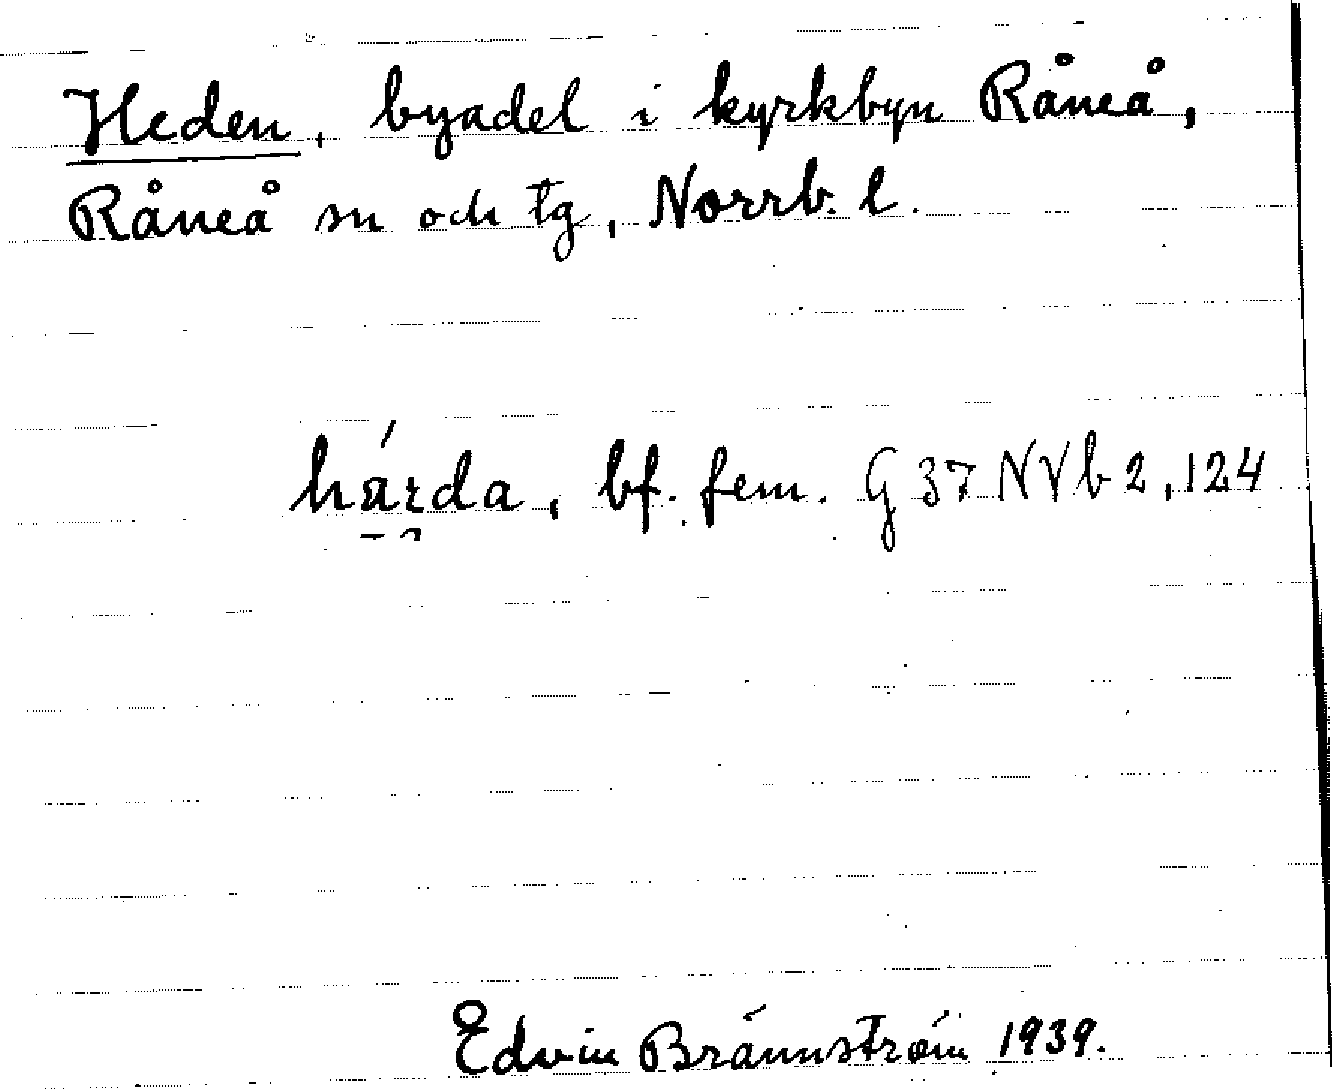 Heden, byadel i kyrkbyn Råneå,
Råneå sn och tg, Norrb. l.
hárda, bf. fem. G 37 NVb 2, 124
Edvin Brännström 1939.